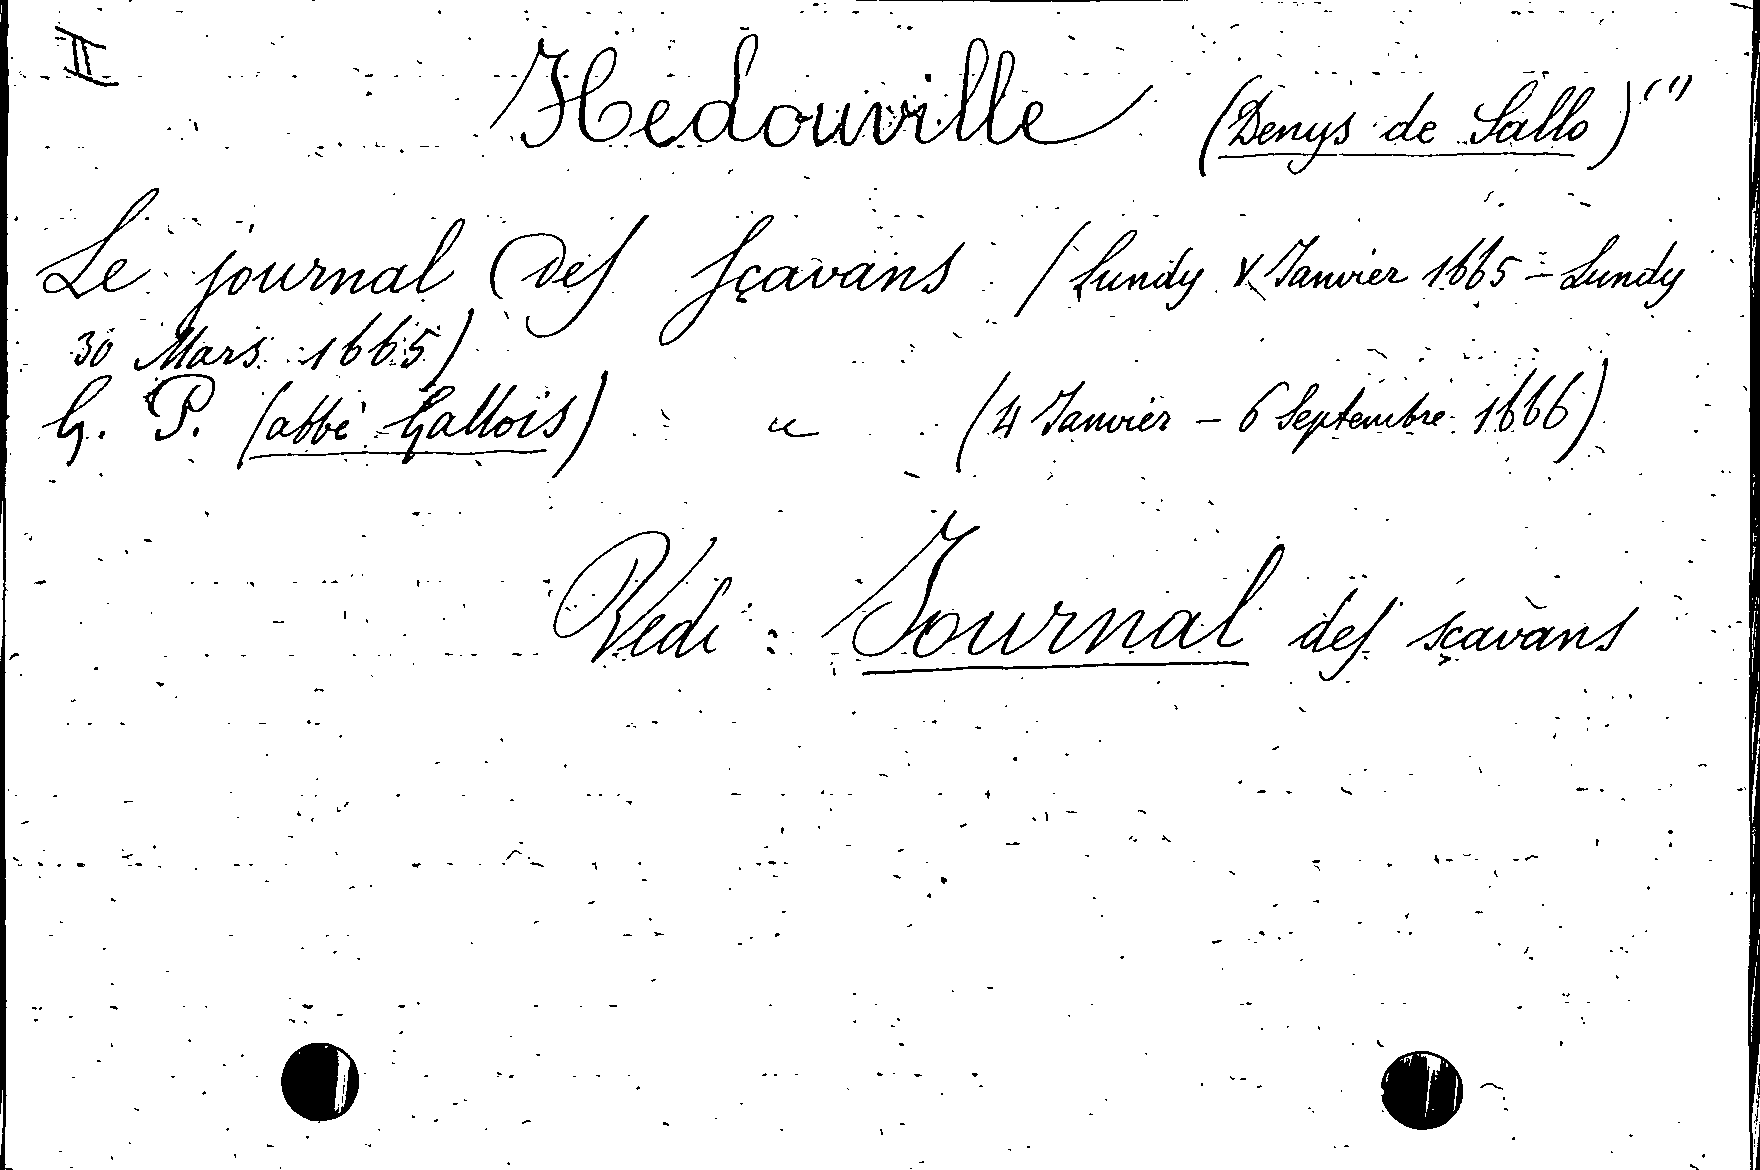 II
Hedouville (Denys de Sallo) ""
Le journal des sçavans (Lundy V Janvier 1665 - Lundy
30 Mars 1665)
G. P. (abbé Gallois) " (4 Janvier - 6 Septembre 1666)
Vedi : Journal des sçavans